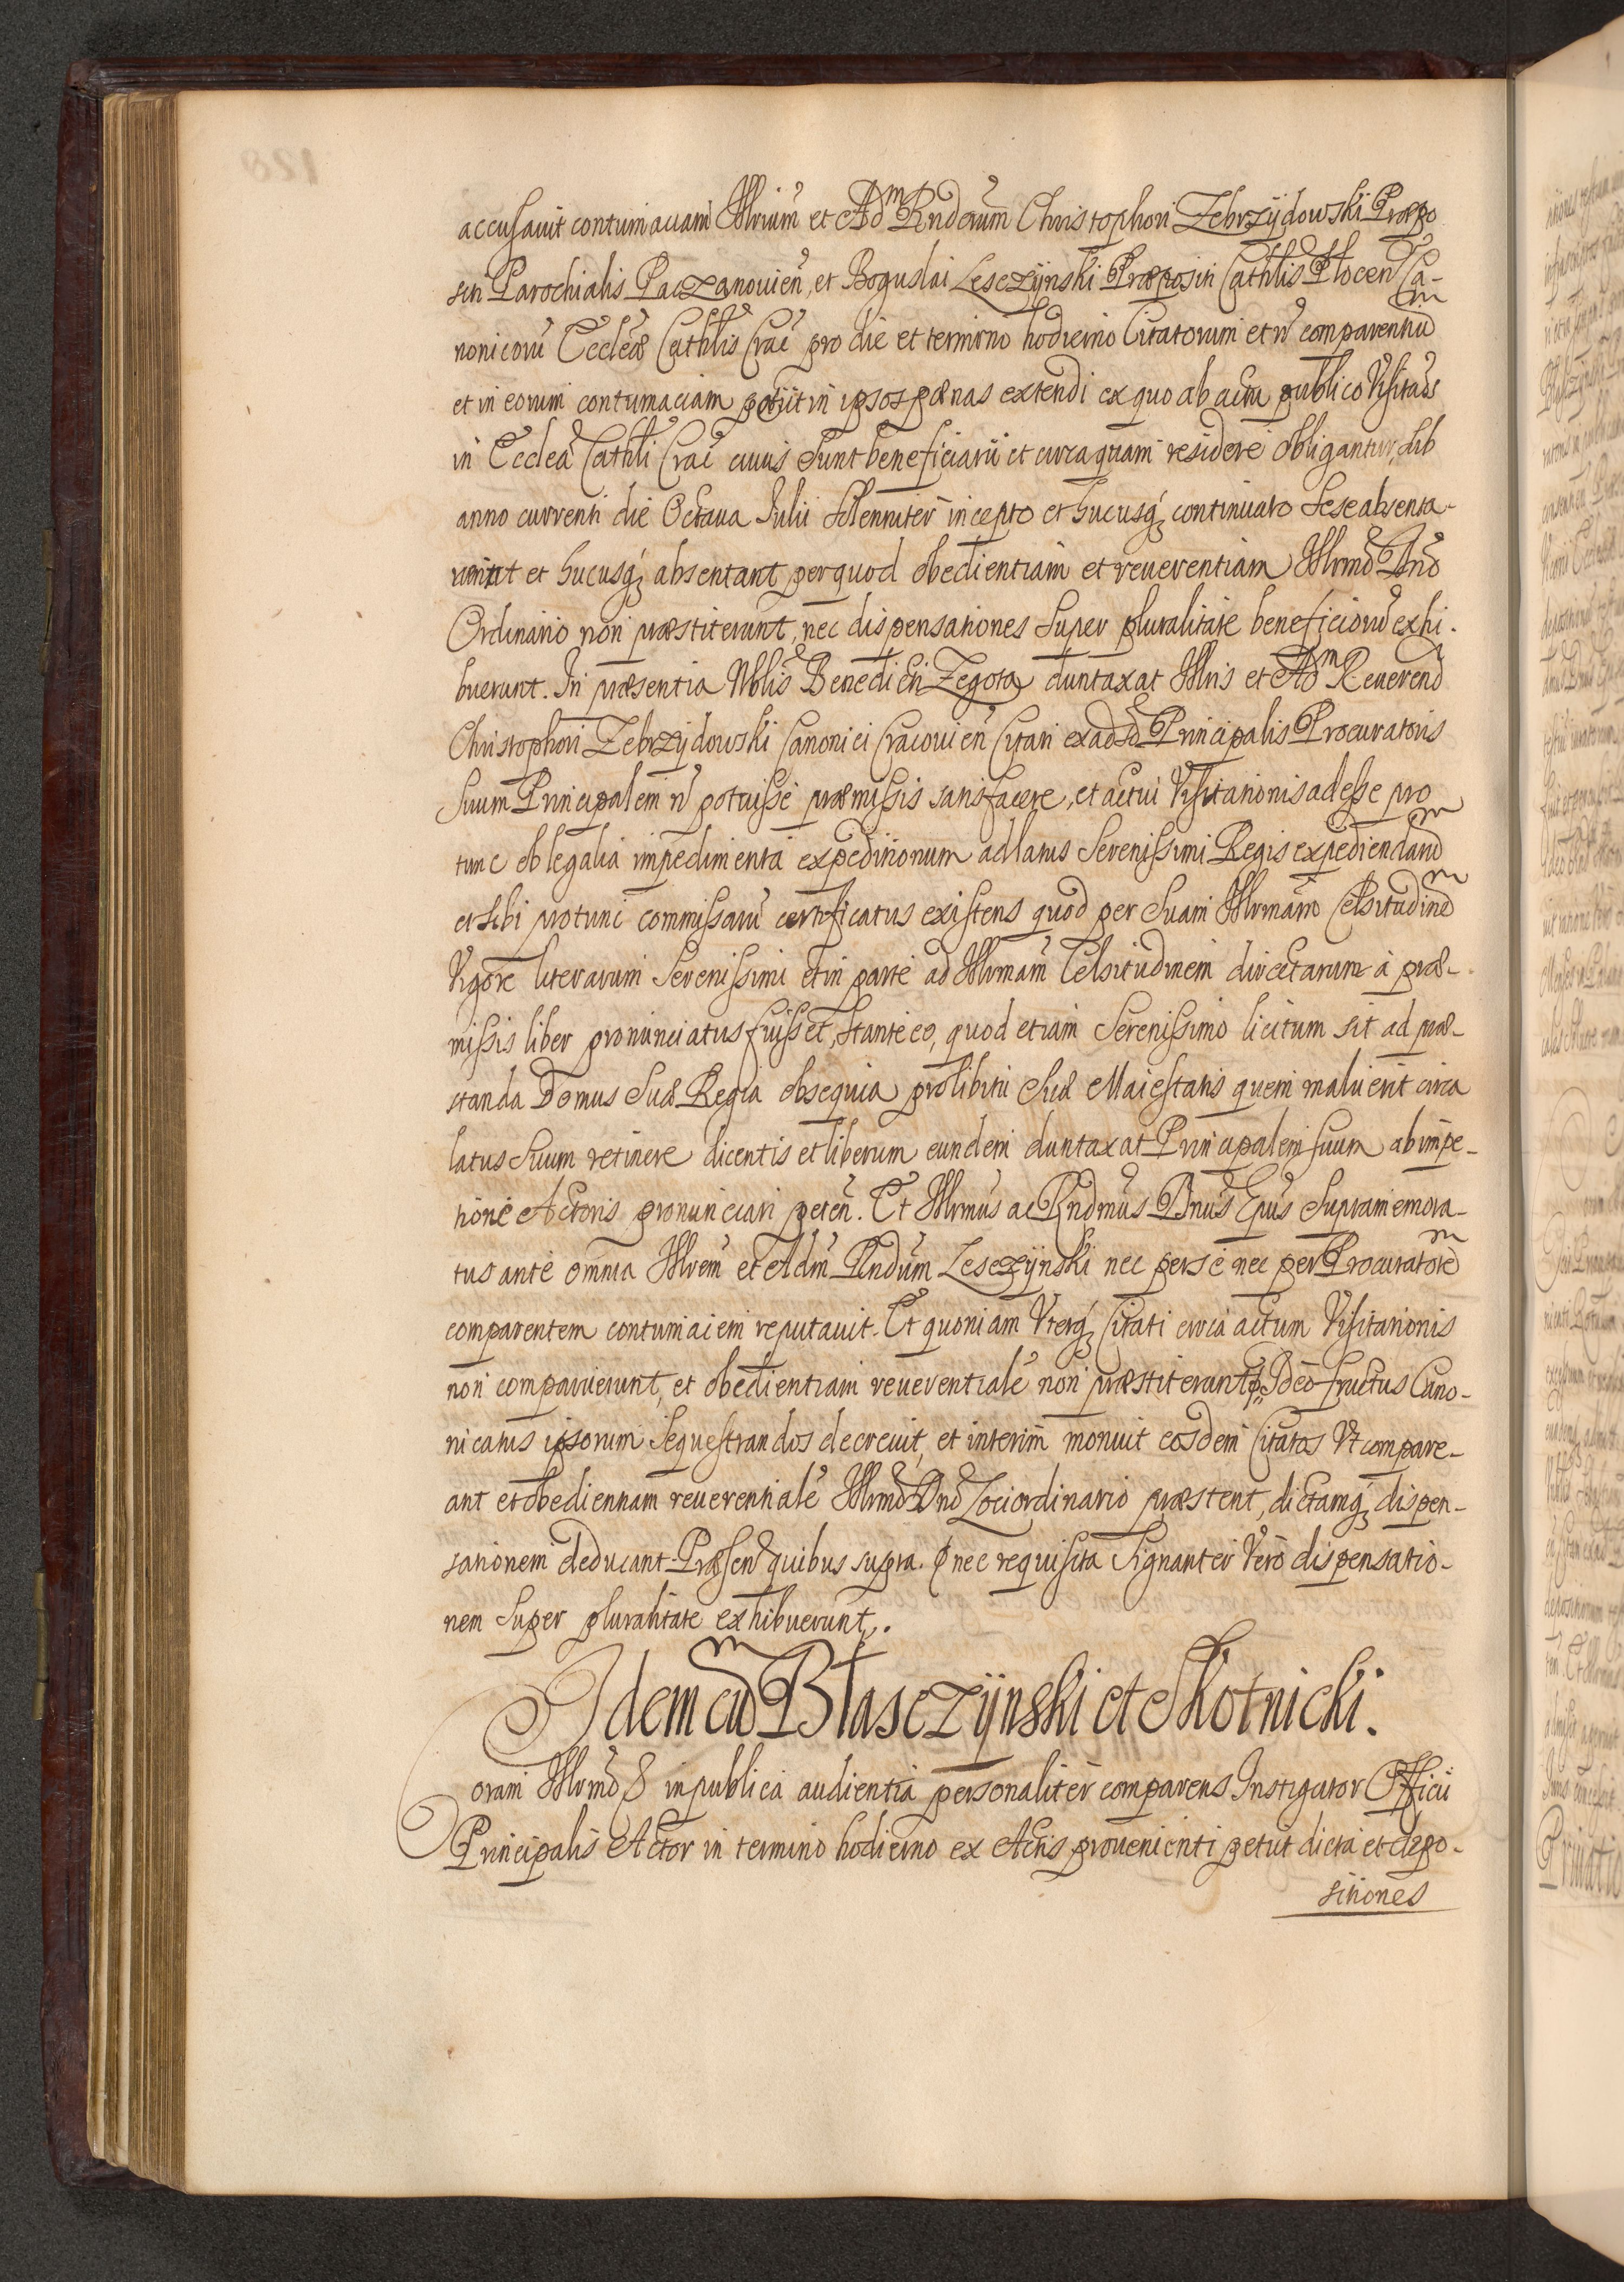 accusauit contumaciam Illrium et Adm Rndorum Christophori Zebrzÿdowski Præpo
siti Parochialis Paczanouien, et Boguslai Lesczÿnski Præpositi Cathlis Plocen Ca-
nonicoru Eccleæ Cathlis Crac pro die et termino hodierno Citatorum et n comparentiu
et in eorum contumaciam petijt in ipsos pœnas extendi ex quo ab actu publico Visitaōs
in Ecclea Cathli Crac cuius sunt beneficiarii et circa quam residere obligantur, sub
anno currenti die Octaua Iulii solenniter incepto et hucusq continuato sese absenta-
uerunt et hucusq absentant per quod obedientiam et reuerentiam Illrmo Dno
Ordinario non præstiterunt, nec dispensationes super pluralitate beneficioru exhi-
buerunt. In præsentia Nblis Benedicti Zegota duntaxat Illris et Adm Reuerend
Christophori Zebrzÿdowski Canonici Cracouien Citati ex adso Principalis Procuratoris
suum Principalem n potuisse præmissis satisfacere, et actui Visitationis adesse pro
tunc ob legalia impedimenta expeditionum ad latus Serenissimi Regis expediendaru
et sibi protunc commissaru certificatus existens quod per suam Illrmam Celsitudine
Vigore literarum Serenissimi et in parte ad Illrmam Celsitudinem directarum à præ-
missis liber pronunciatus fuisset, stante eo, quod etiam Serenissimo licitum sit ad præ-
standa Domus Suæ Regia obsequia pro libitu Suæ Maiestatis quem maluerit circa
latus suum retinere dicentis et liberum eundem duntaxat Principalem suum ab impe-
tione Actoris pronunciari peten. Et Illrmus ac Rndmus Dnus Epus supramemora-
tus ante omnia Illrem et Adm Rndum Lesczÿnski nec per se nec per Procuratore
comparentem contumacem reputauit. Et quoniam Vterq Citati circa actum Visitationis
non comparuerunt, et obedientiam reuerentiale non præstiterunt Ideo fructus Cano-
nicatus ipsorum sequestrandos decreuit, et interim monuit eosdem Citatos Vt compare-
ant et obedientiam reuerentiale Illrmo Dno Lociordinario præstent, dictamq dispen-
sationem deducant. Præsen quibus supra. nec requisita signanter Vero dispensatio-
nem super pluralitate exhibuerunt.
Idem cum Błasczÿnski et Skotnicki.
Coram Illrmo in publica audientia personaliter comparens Instigator Officii
Principalis Actor in termino hodierno ex Actis prouenienti petijt dicta et depo-
sitiones